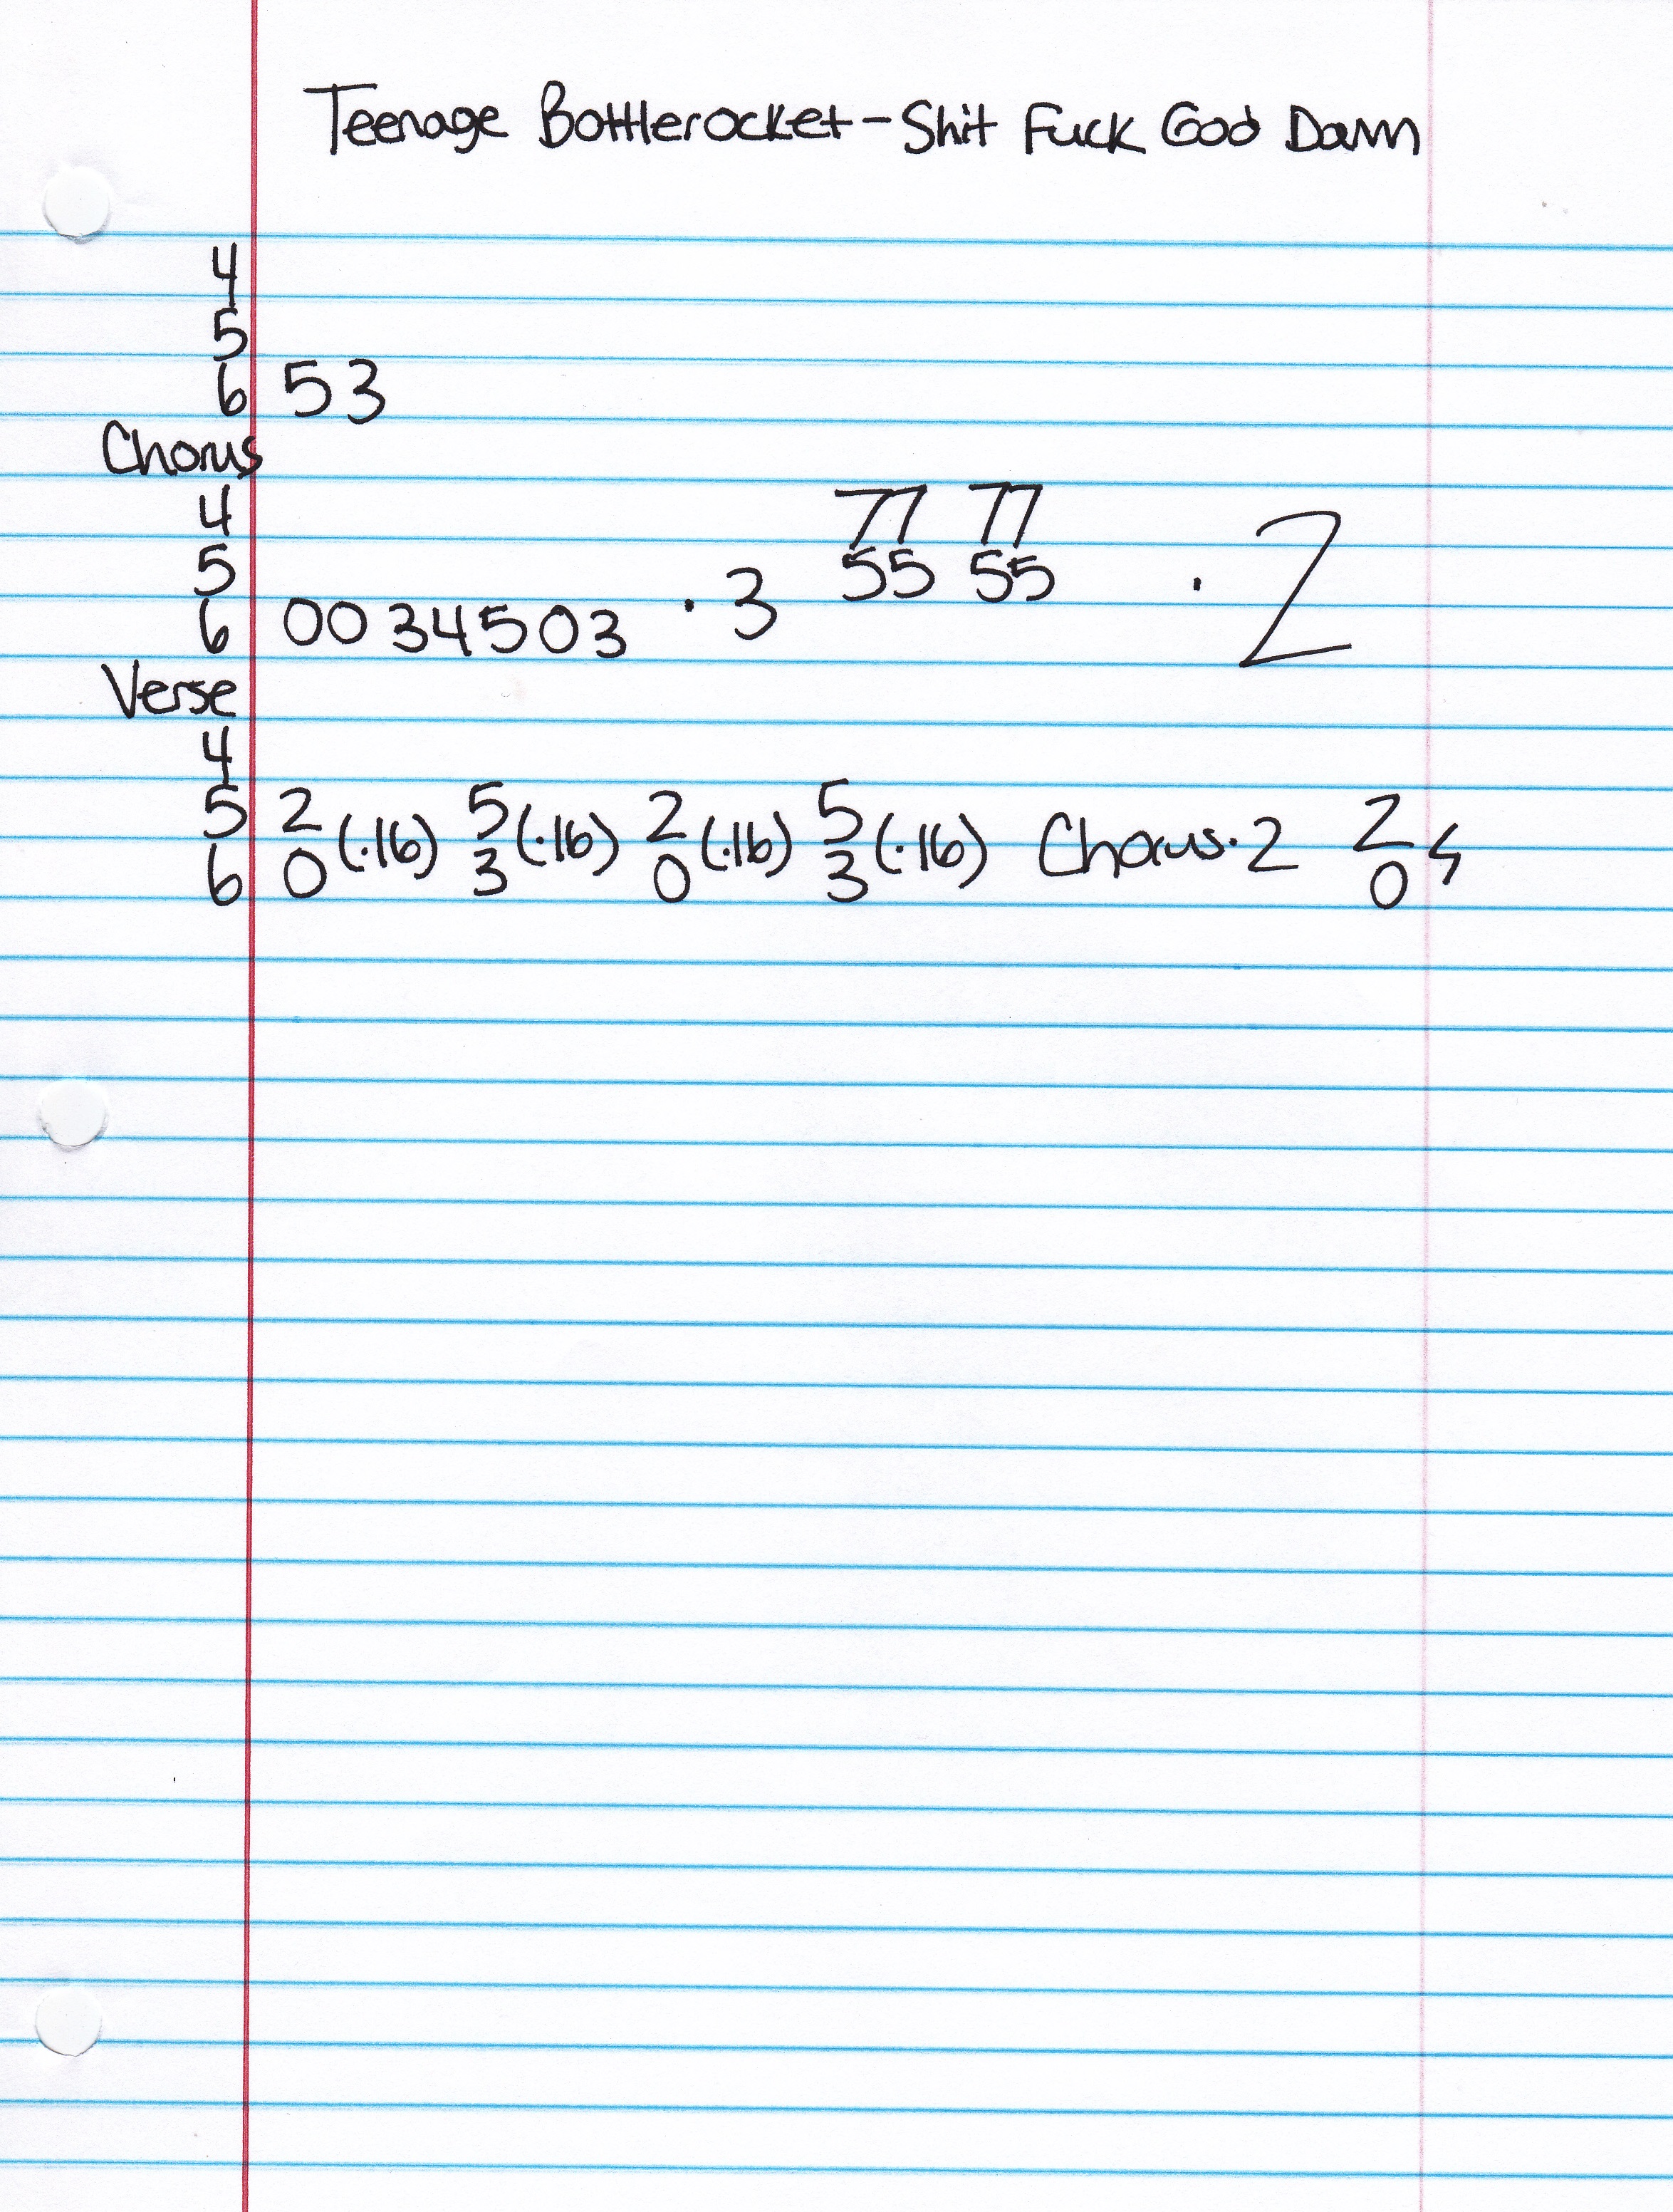 Teenage Bottlerocket - Shit Fuck God Damn
4
5
6 53
Chorus
4 77 77
5 55 55
6 0034503 ·3 ·2
Verse
4
5 2 5 2 5 2
6 0 (·16) 3 (·16) 0 (·16) 3 (·16) Chorus·2 0